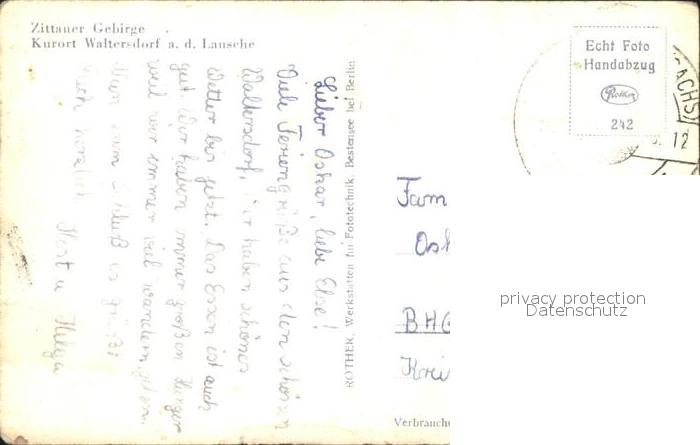 Zittauer Gebirge
Kurort Waltersdorf a. d. Lausche
Echt Foto
Handabzug
Rother
242
12
Lieber Oskar, liebe Else!
Viele Feriengrüße aus dem schönen
Waltersdorf. haben schönes
Wetter bis jetzt. Das Essen ist auch
gut. Wir haben immer großen Hunger
weil wir immer viel wandern
Nun zum Schluß
Euch herzlich Horst u Helga
ROTHER, Werkstätten für Fototechnik, Bestensee bei Berlin
Fam
Osk
privacy protection
Datenschutz
BHG
Krei
Verbrauche